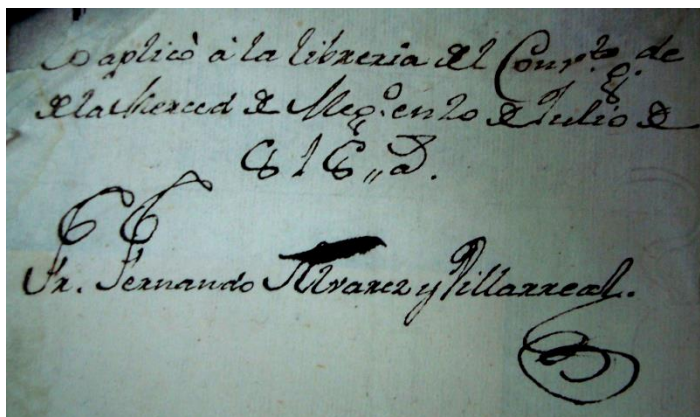 Se aplicò à la libreria del Conv.to g.e de
de la Merced de Meg.o en 20 de Julio de
Fr. Fernando Alvarez y Villarreal.